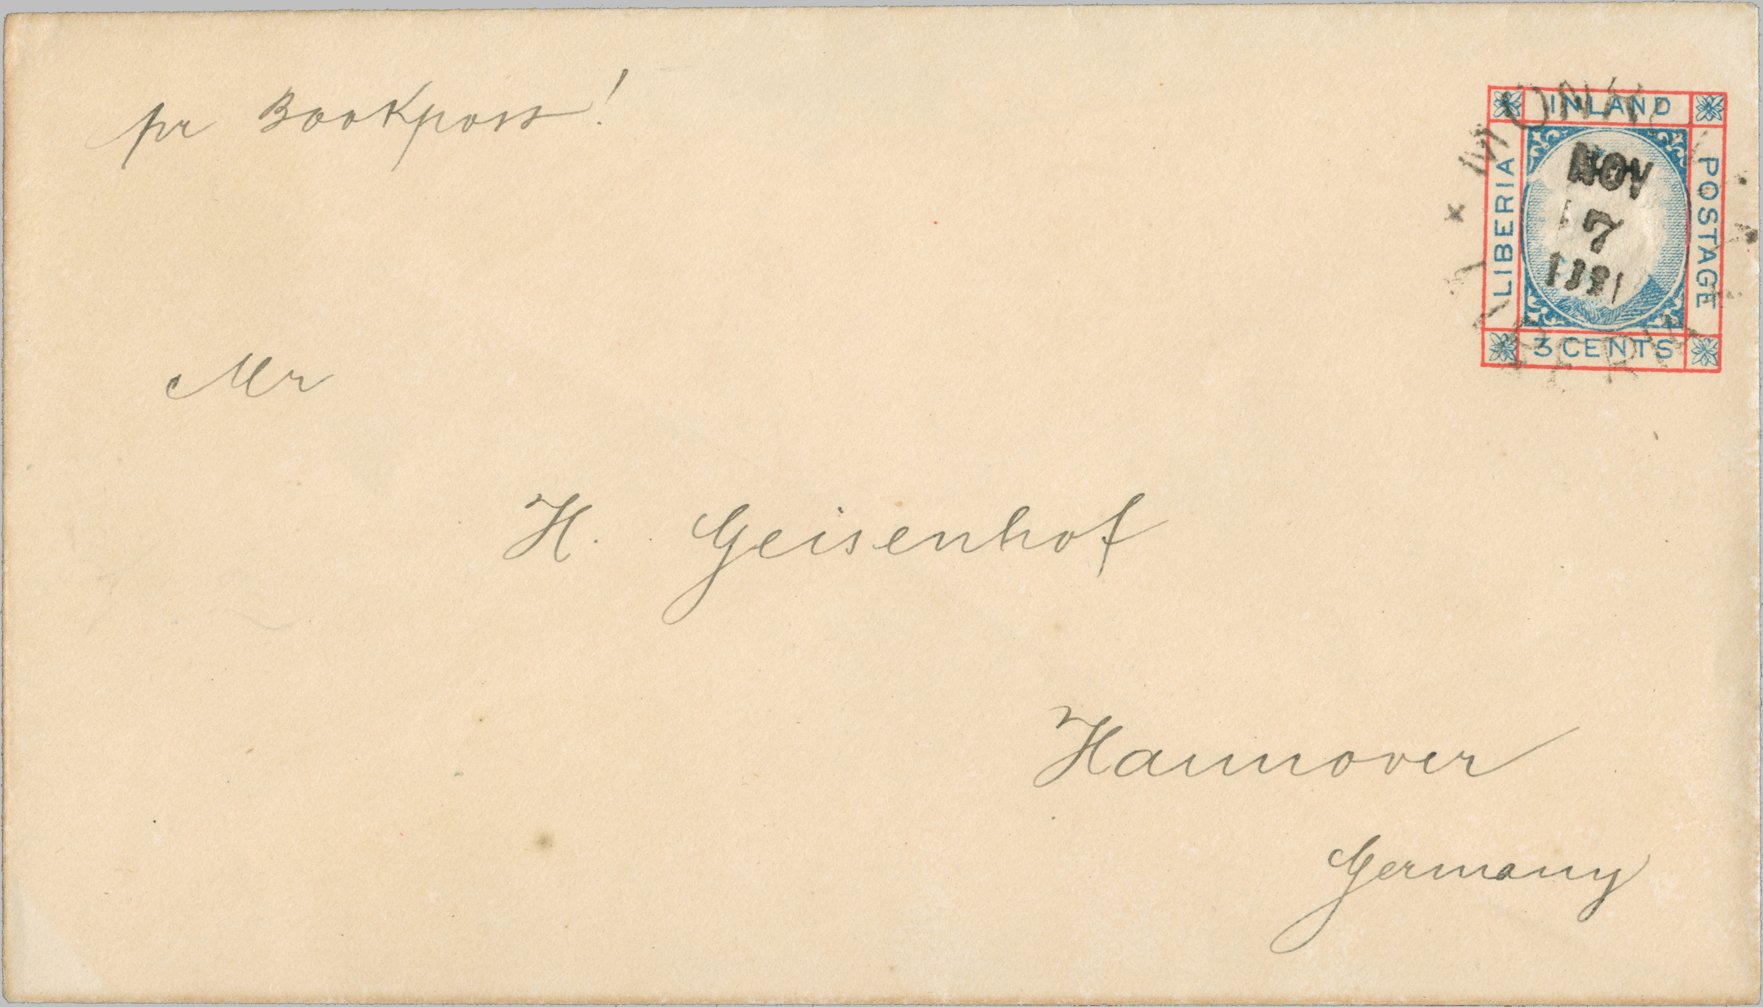 pr Bookpost!
INLAND
LIBERIA
POSTAGE
3 CENTS
NOV
7
Mr
H. Geisenhof
Hannover
Germany